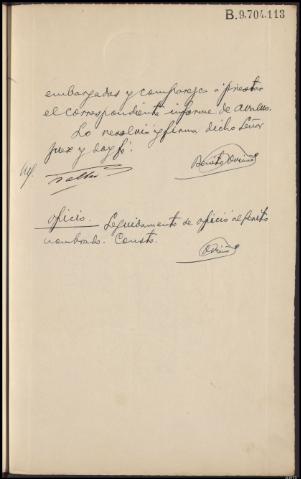 B.9.704.113
embargadas y comparezca a prestar
el correspondiente informe de avaluo.
Lo resolvió y firma dicho Señor
Juez y doy fé.
Benito
oficio. Seguidamente se ofició al perito
nombrado. Consta.